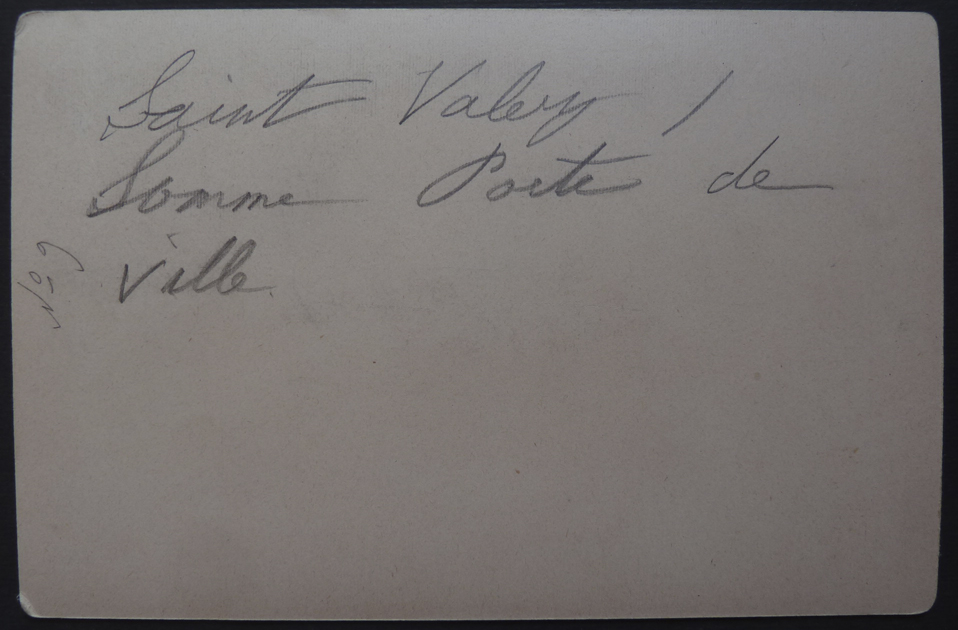 Saint Valery /
Somme Porte de
Ville.
No 9